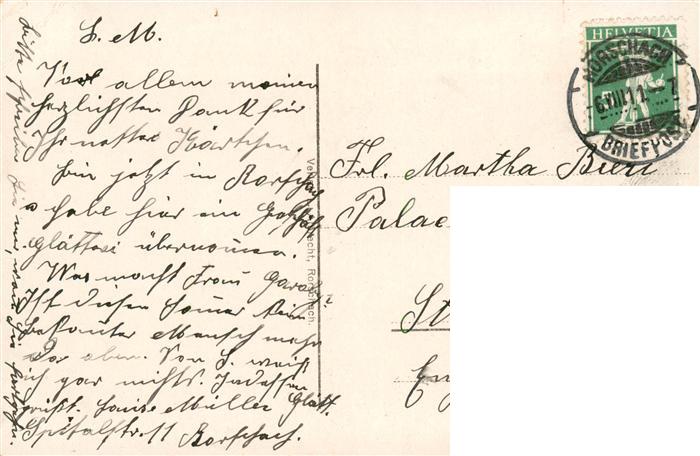 L. M.
Vor allem meinen
herzlichsten Dank für
Ihr nettes Kärtchen.
Bin jetzt in Rorschach
habe hier ein Geschäft
Glätterei übernommen.
Was macht Frau
Ist diesen Somer kein
bekannter Mensch mehr
Da oben. Von S. weiß
ich gar nichts. Indessen
grüßt. Louise Müller Glätt.
Spitalstr. 11 Rorschach.
Bitte schreiben Sie mir, wann Sie
HELVETIA
RORSCHACH
6.VIII.11.-7
BRIEFPOST
Frl. Martha Bieri
Palace
St
Eng
Rorschach.